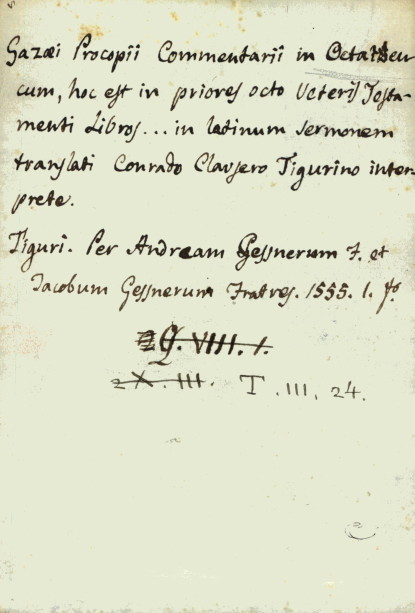 Gazæi Procopii Commentarii in Octateu
cum, hoc est in priores octo Veteris Testa-
menti Libros... in latinum sermonem
translati Conrado Clausero Tigurino inter-
prete.
Tiguri. Per Andream Gessnerum F. et
Jacobum Gessnerum Fratres. 1555. 1. fo
G. VIII. 1.
2 X. III. T. III. 24.